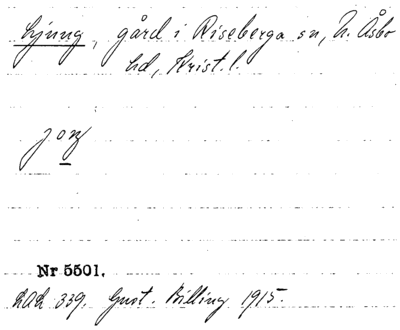 Ljung, gård i Riseberga sn, N. Åsbo
hd, Krist. l.
joŋ
Nr 5501.
LAL 339. Gust. Billing 1915.